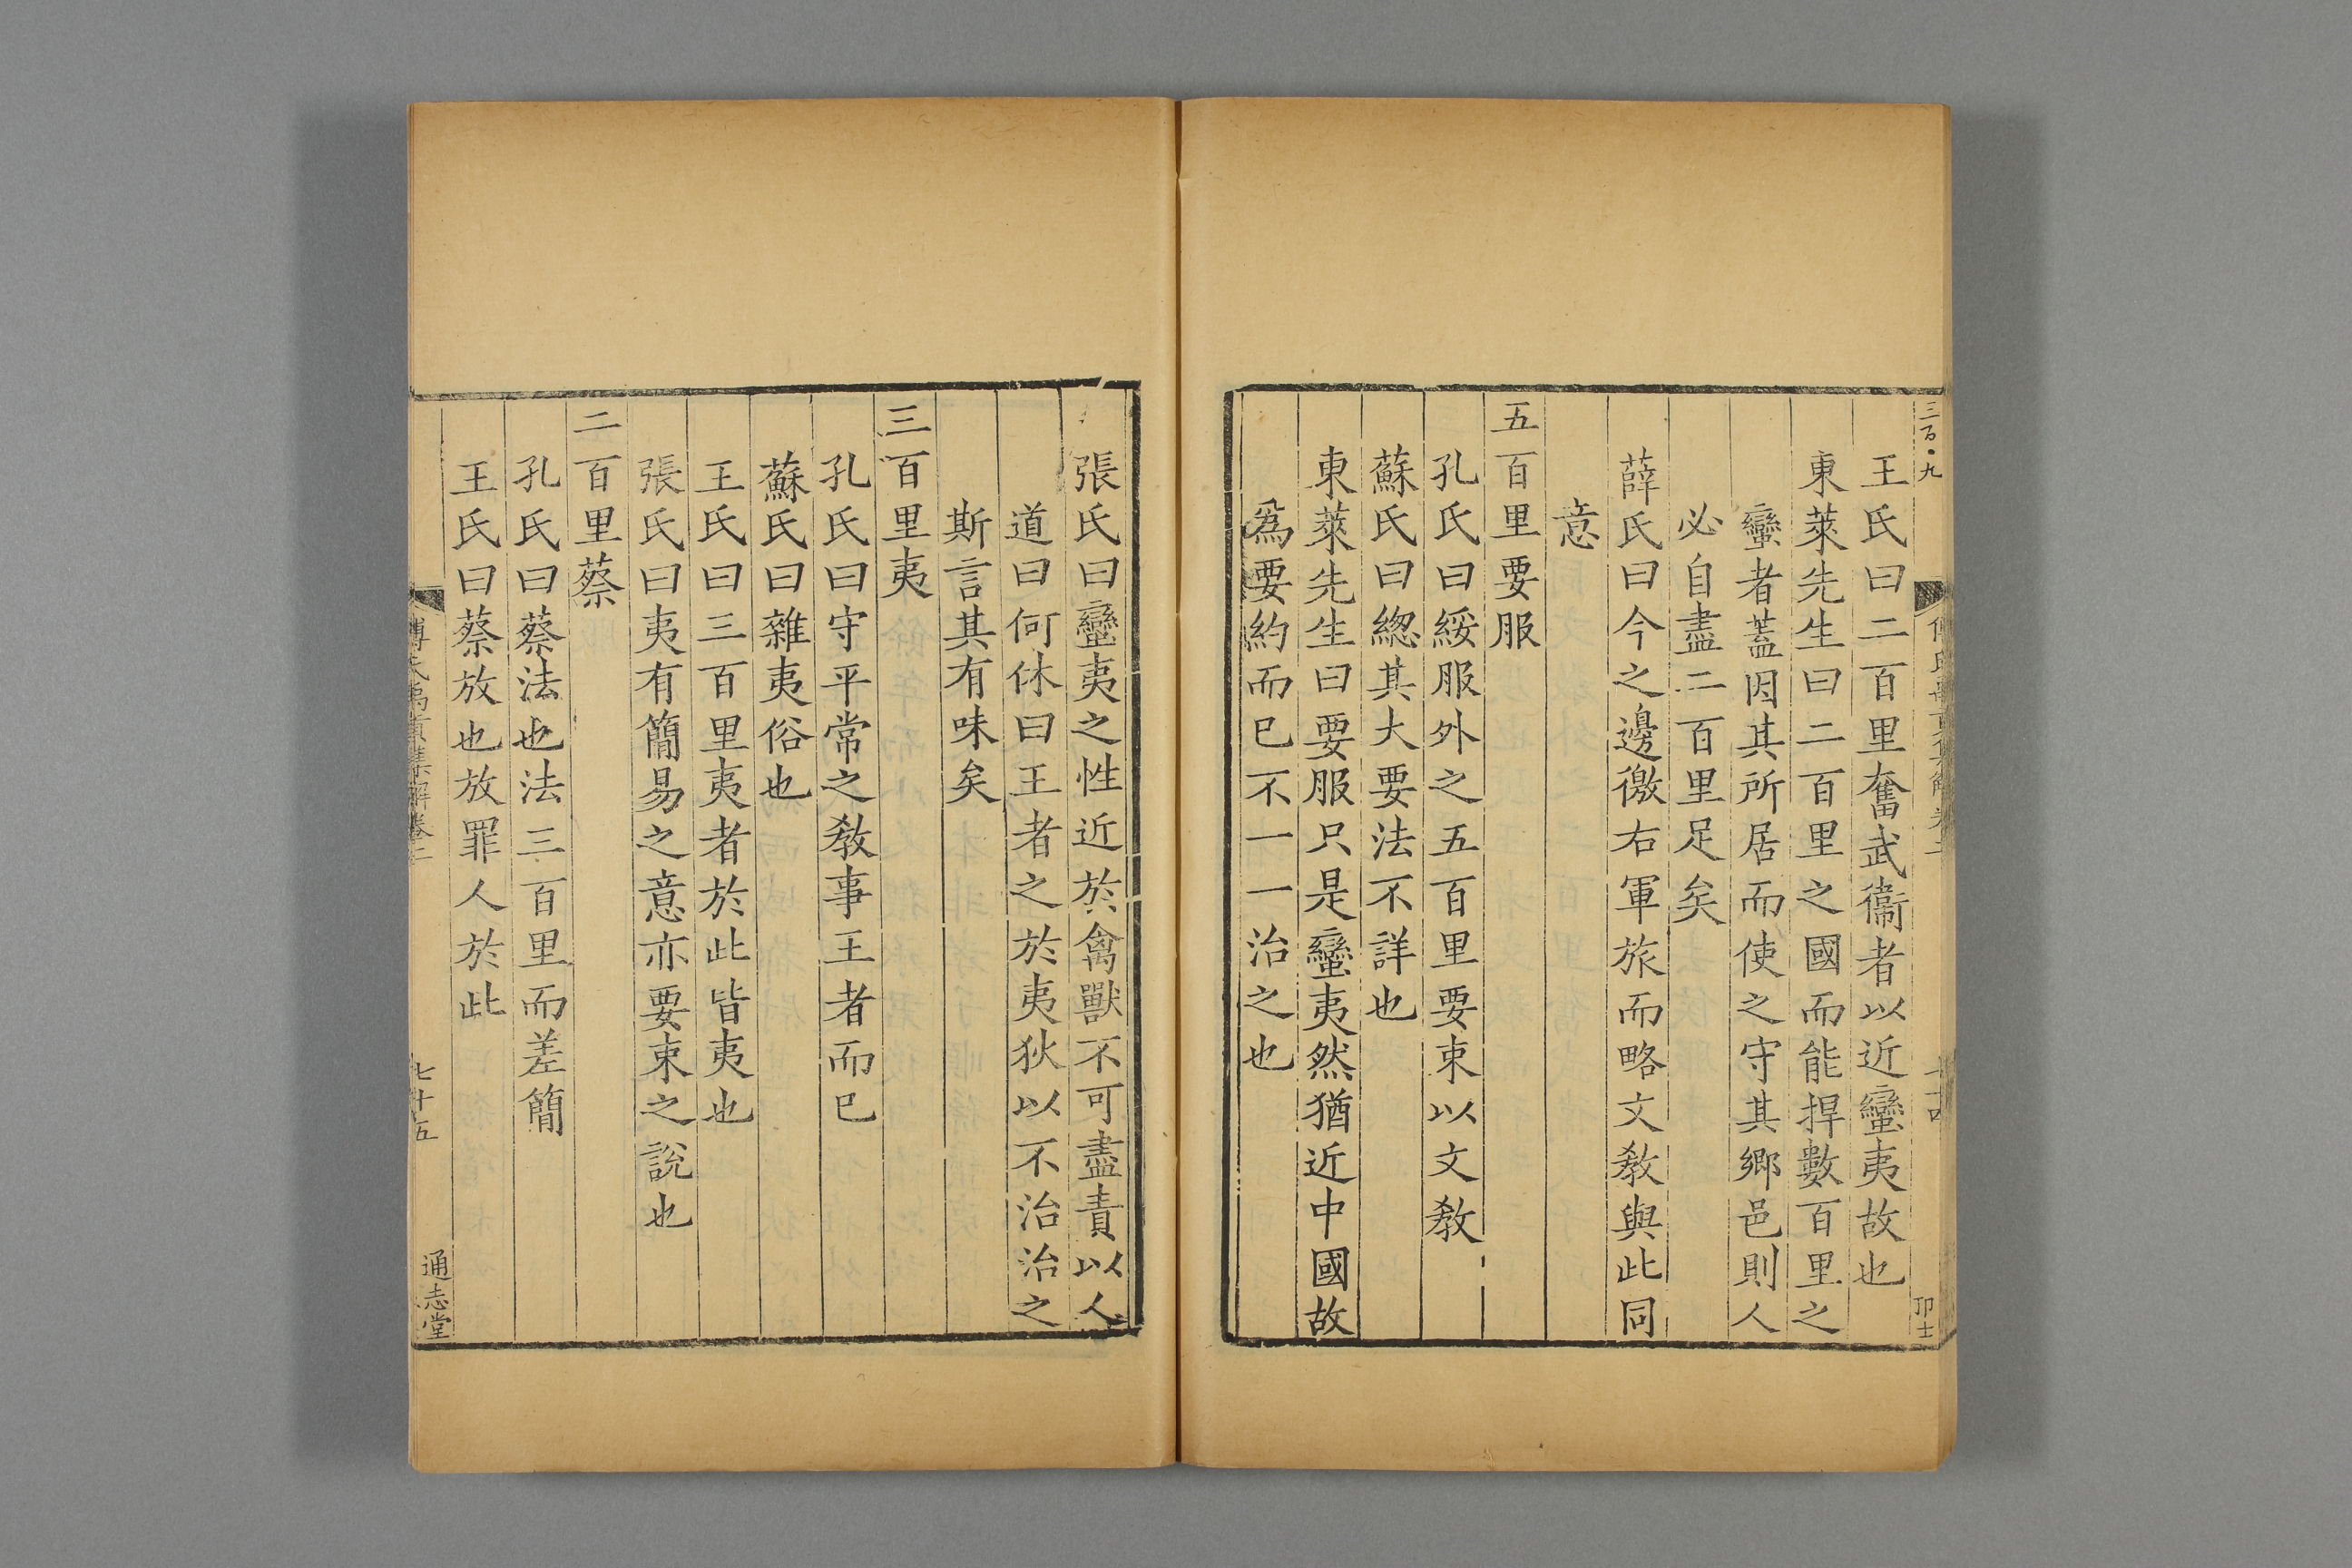 三百·九
王氏曰二百里奮武衞者以近蠻夷故也
東萊先生曰二百里之國而能捍數百里之
蠻者蓋因其所居而使之守其鄉邑則人
必自盡二百里足矣
薛氏曰今之邊徼右軍旅而略文敎與此同
意
五百里要服
孔氏曰綏服外之五百里要束以文敎
蘇氏曰緫其大要法不詳也
東萊先生曰要服只是蠻夷然猶近中國故
爲要約而已不一一治之也
張氏曰蠻夷之性近於禽獸不可盡責以人
道曰何休曰王者之於夷狄以不治治之
斯言其有味矣
三百里夷
孔氏曰守平常之敎事王者而已
蘇氏曰雜夷俗也
王氏曰三百里夷者於此皆夷也
張氏曰夷有簡易之意亦要束之說也
二百里蔡
孔氏曰蔡法也法三百里而差簡
王氏曰蔡放也放罪人於此
傅氏禹貢集解卷二
七十五
通志堂